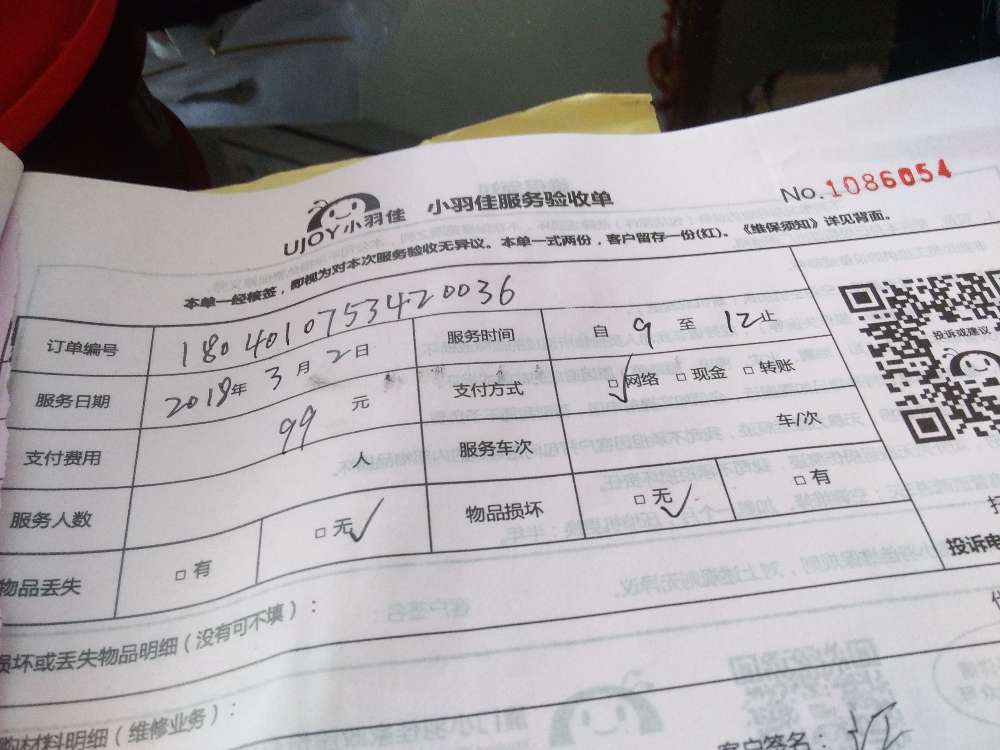 UJOY小羽佳 小羽佳服务验收单 No.1086054
本单一经核签，即视为对本次服务验收无异议。本单一式两份，客户留存一份(红)。《维保须知》详见背面。
订单编号 1804010753420036 服务时间 自 9 至 12止
服务日期 2018年 3月 2日 支付方式 网络 现金 转账
支付费用 99 元 服务车次 车/次
服务人数 人 物品损坏 无 有
物品丢失 有 无
投诉或建议
投诉电
损坏或丢失物品明细（没有可不填）：
购材料明细（维修业务）：
客户签名：